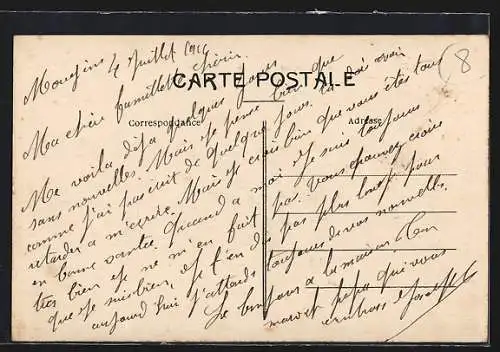 Mougins 4 Juillet 1916
8
CARTE POSTALE
Correspondance
Adresse
Ma chère famille chérie
Me voilà déjà quelques jours
sans nouvelles. Mais je pense bien que
comme j'ai pas écrit de quelque jours
retarder a m'écrire. Mais je crois bien que vous êtes tous
en bonne santée. Quand a moi je suis toujours
très bien je ne m'en fait pas. Vous pouvez croire
que je suis bien, et je t'en dis pas plus long pour
aujourd'hui j'attends toujours de vos nouvelles.
Le bonjour a la maison
qui vous
embrasse Joseph